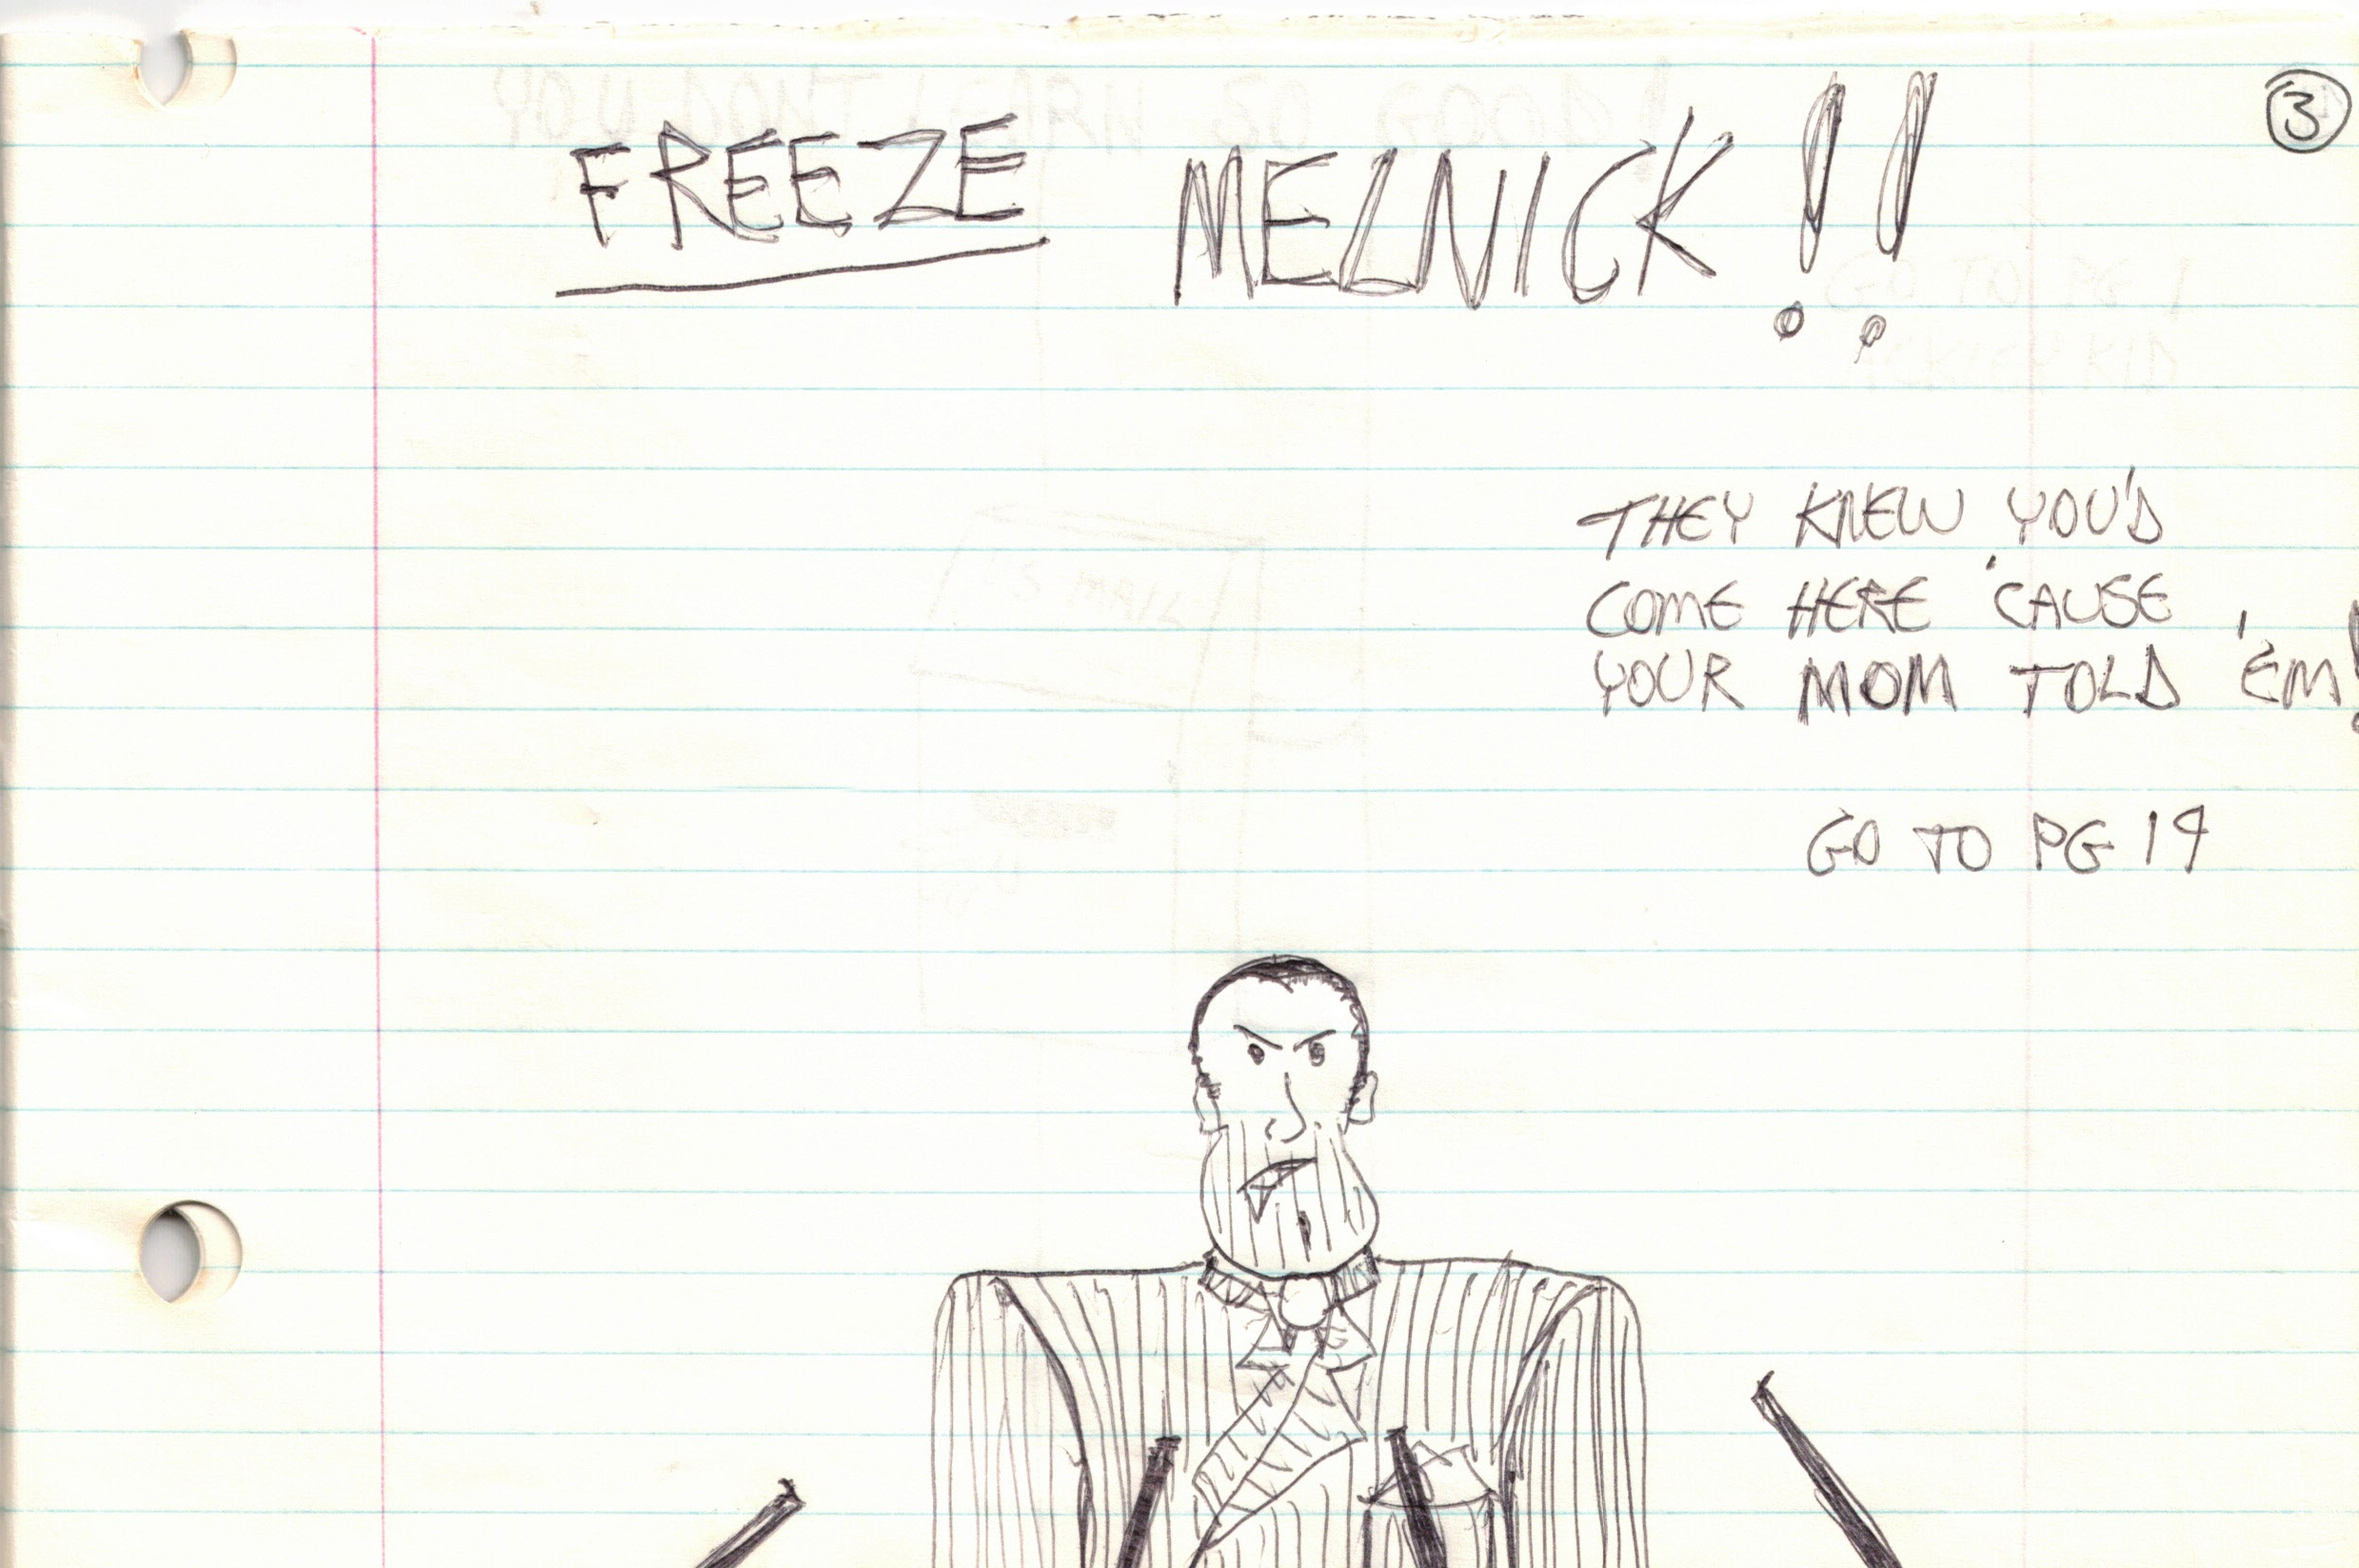 FREEZE MELNICK!!
3
THEY KNEW YOU'D
COME HERE 'CAUSE
YOUR MOM TOLD 'EM!
GO TO PG 19